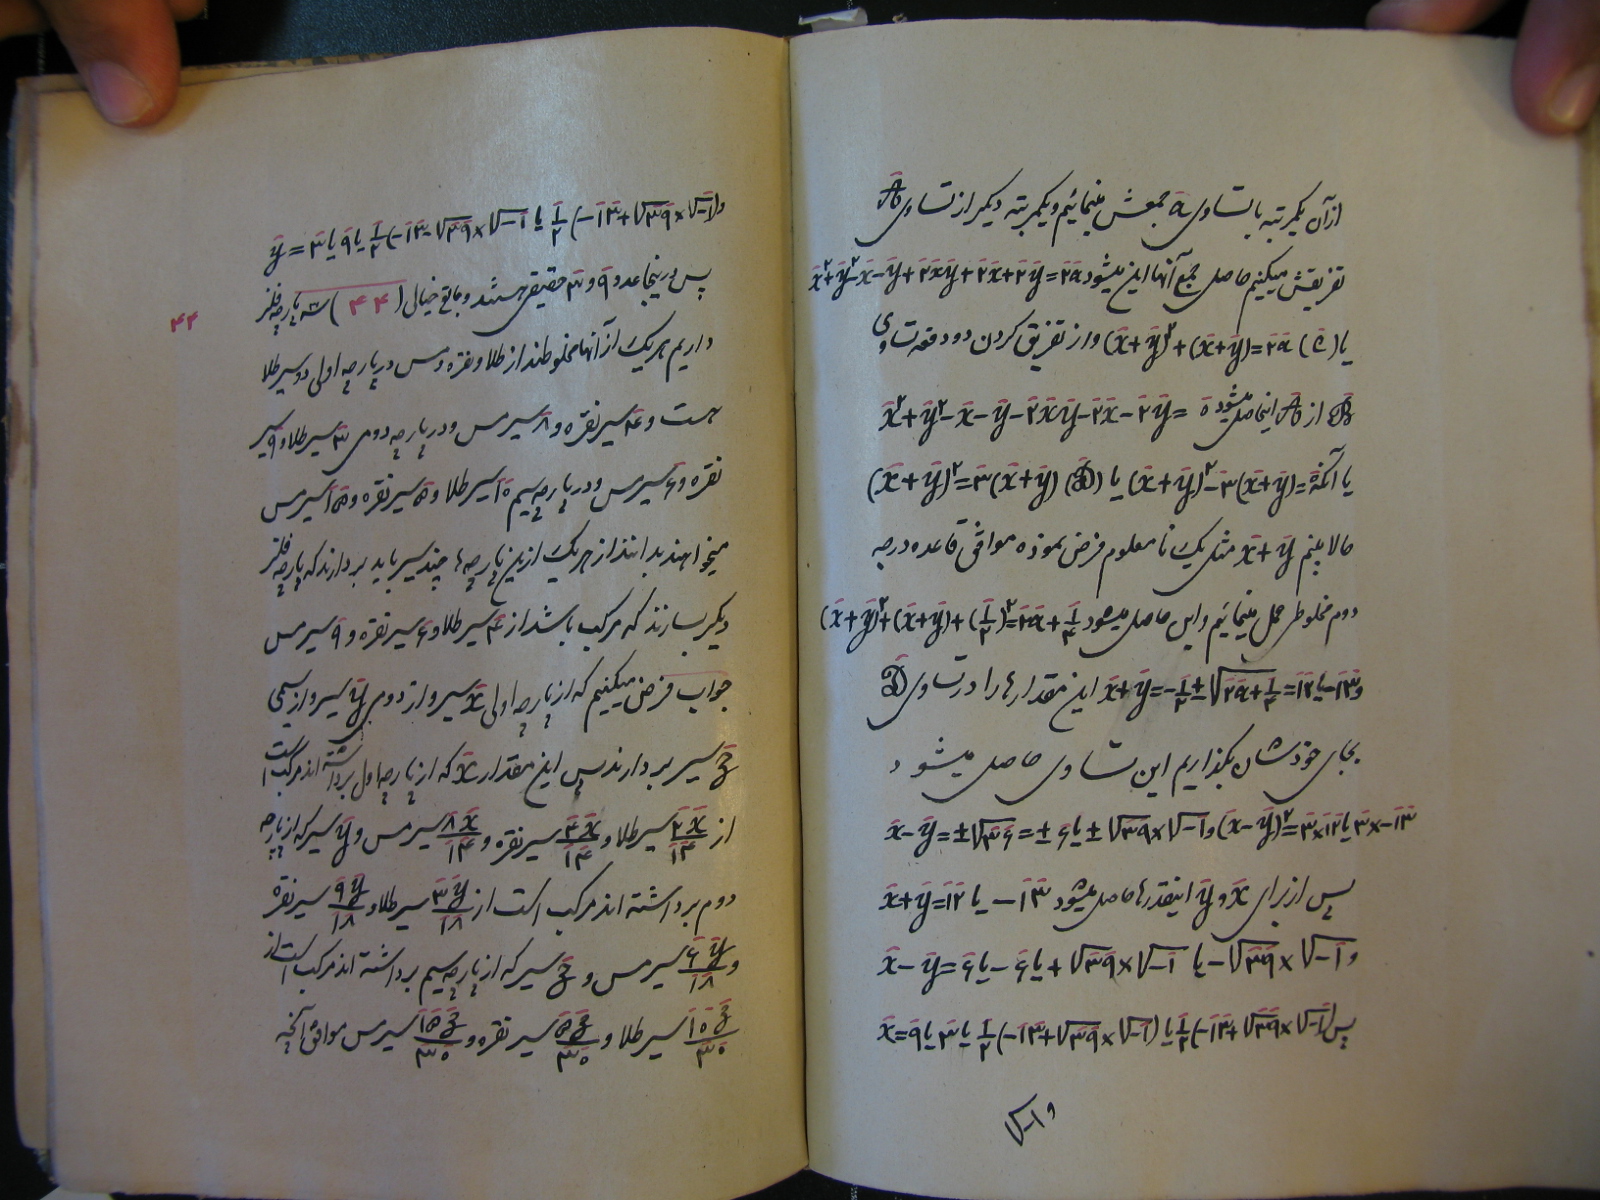 ازآن یکمرتبه با تساوی a جمعش مینمائیم ویکمرتبه دیکر از تساوی A
تفریقش میکنیم حاصل جمع آنها این میشود x²+y²-x-y+۲xy+۲x+۲y=۲a
یا (c) (x+y)²+(x+y)=۲a واز تفریق کردن دو دفعه تساوی
B از A اینحاصل میشود x²+y²-x-y-۲xy-۲x-۲y=۰
یا آنکه (x+y)²-۳(x+y)=۰ یا (D) (x+y)²=۳(x+y)
حالا بینیم x+y مثل یک نا معلوم فرض نموده موافق قاعده درجه
دوم مخلوط حل مینمائیم واین حاصل میشود (x+y)²+(x+y)+(۱/۲)²=۲a+۱/۴
x+y=-۱/۲±√۲a+۱/۴=۱۲ یا -۱۳ و این مقدارها را در تساوی D
بجای خودشان بکذاریم این تساوی حاصل میشود
(x-y)²=۳×۱۲ یا ۳×-۱۳ و x-y=±√۳۶=±۶ یا ±√۳۹×√-۱
پس از برای x و y اینقدرها حاصل میشود x+y=۱۲ یا -۱۳
x-y=۶ یا -۶ یا +√۳۹×√-۱ یا -√۳۹×√-۱ و
پس x=۹ یا ۳ یا ۱/۲(-۱۳+√۳۹×√-۱) یا ۱/۲(-۱۳+√۳۹×√-۱)
و √-۱
و y=۳ یا ۹ یا ۱/۲(-۱۳-√۳۹×√-۱ یا ۱/۲(-۱۳+√۳۹×√-۱)
پس دراینجا عدد ۹ و ۳ حقیقی هستند و مابقی خیالی (۴۴) سه پارچه فلز
۴۴
داریم هریک ازآنها مخلوطند از طلا ونقره ومس در پارچه اولی دو سیر طلا
است و ۴ سیر نقره و ۸ سیر مس ودر پارچه دومی ۳ سیر طلا و ۹ سیر
نقره و ۶ سیر مس ودر پارچه سیم ۱۰ سیر طلا و ۵ سیر نقره و ۱۵ سیر مس
میخواهند بدانند از هریک ازین پارچه ها چند سیر باید بردارند که پارچه فلز
دیکر بسازند که مرکب باشد از ۴ سیر طلا و ۶ سیر نقره و ۹ سیر مس
جواب فرض میکنیم که از پارچه اولی x سیر واز دومی y سیر واز سیمی
ج سیر بردارند پس این مقدار x که از پارچه اول برداشته اند مرکب است
از ۲x/۱۴ سیر طلا و ۴x/۱۴ سیر نقره و ۸x/۱۴ سیر مس و y سیر که از پارچه
دوم برداشته اند مرکب است از ۳y/۱۸ سیر طلا و ۹y/۱۸ سیر نقره
و ۶y/۱۸ سیر مس و ج سیر که از پارچه سیم برداشته اند مرکب است از
۱۰ج/۳۰ سیر طلا و ۵ج/۳۰ سیر نقره و ۱۵ج/۳۰ سیر مس موافق آنچه